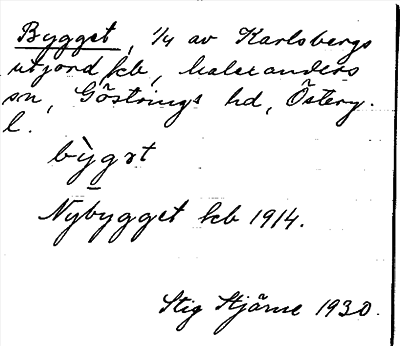 Bygget, 1/4 av Karlsbergs
utjord, kb, Malexanders
sn, Göstrings hd, Österg.
l.
bỳgɛt
Nybygget kb 1914.
Stig Stjärne 1930.